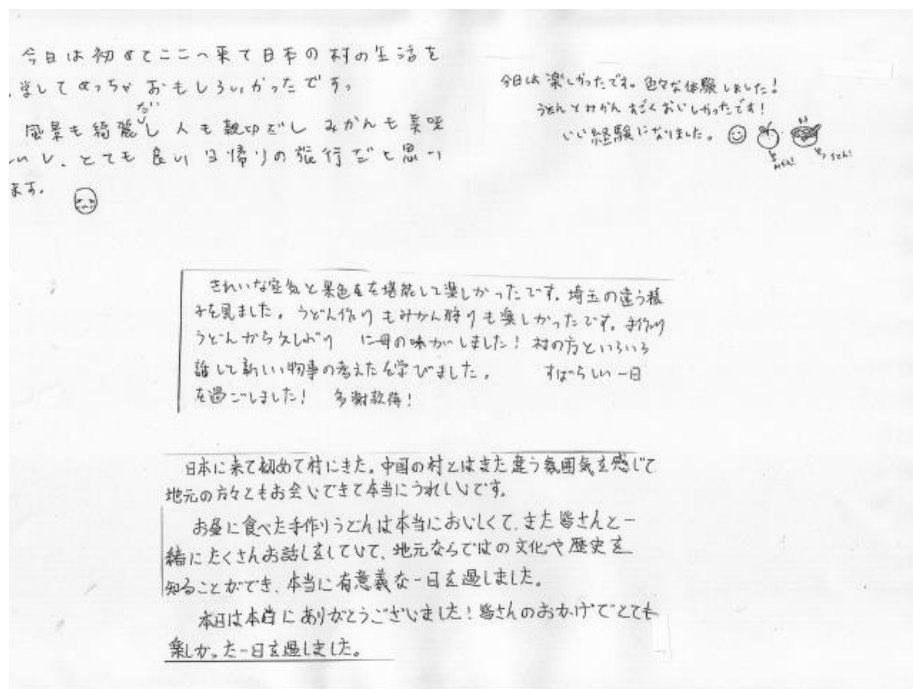 今日は初めてここへ来て日本の村の生活を
してめっちゃおもしろいかったです。
風景も綺麗だし人も親切だし みかんも美味
いし、とても良い日帰りの旅行だと思い
ます。
今日は楽しかったです。色々な体験しました!
うどんとみかん すごくおいしかったです!
いい経験になりました。
みかん!
うどん!
きれいな空気と景色を堪能して楽しかったです。埼玉の違う様
子を見ました。うどん作りもみかん狩りも楽しかったです。手作り
うどんから久しぶりに母の味がしました! 村の方といろいろ
話して新しい物事の考えたを学びました。 すばらしい一日
を過ごしました! 多謝款待!
日本に来て初めて村にきた。中国の村とはまた違う雰囲気を感じて
地元の方々ともお会いできて本当にうれしいです。
お昼に食べた手作りうどんは本当においしくて、また皆さんと一
緒にたくさんお話しをしていて、地元ならではの文化や歴史を
知ることができ、本当に有意義な一日を過しました。
本日は本当にありがとうございました!皆さんのおかげでとても
楽しかった一日を過しました。